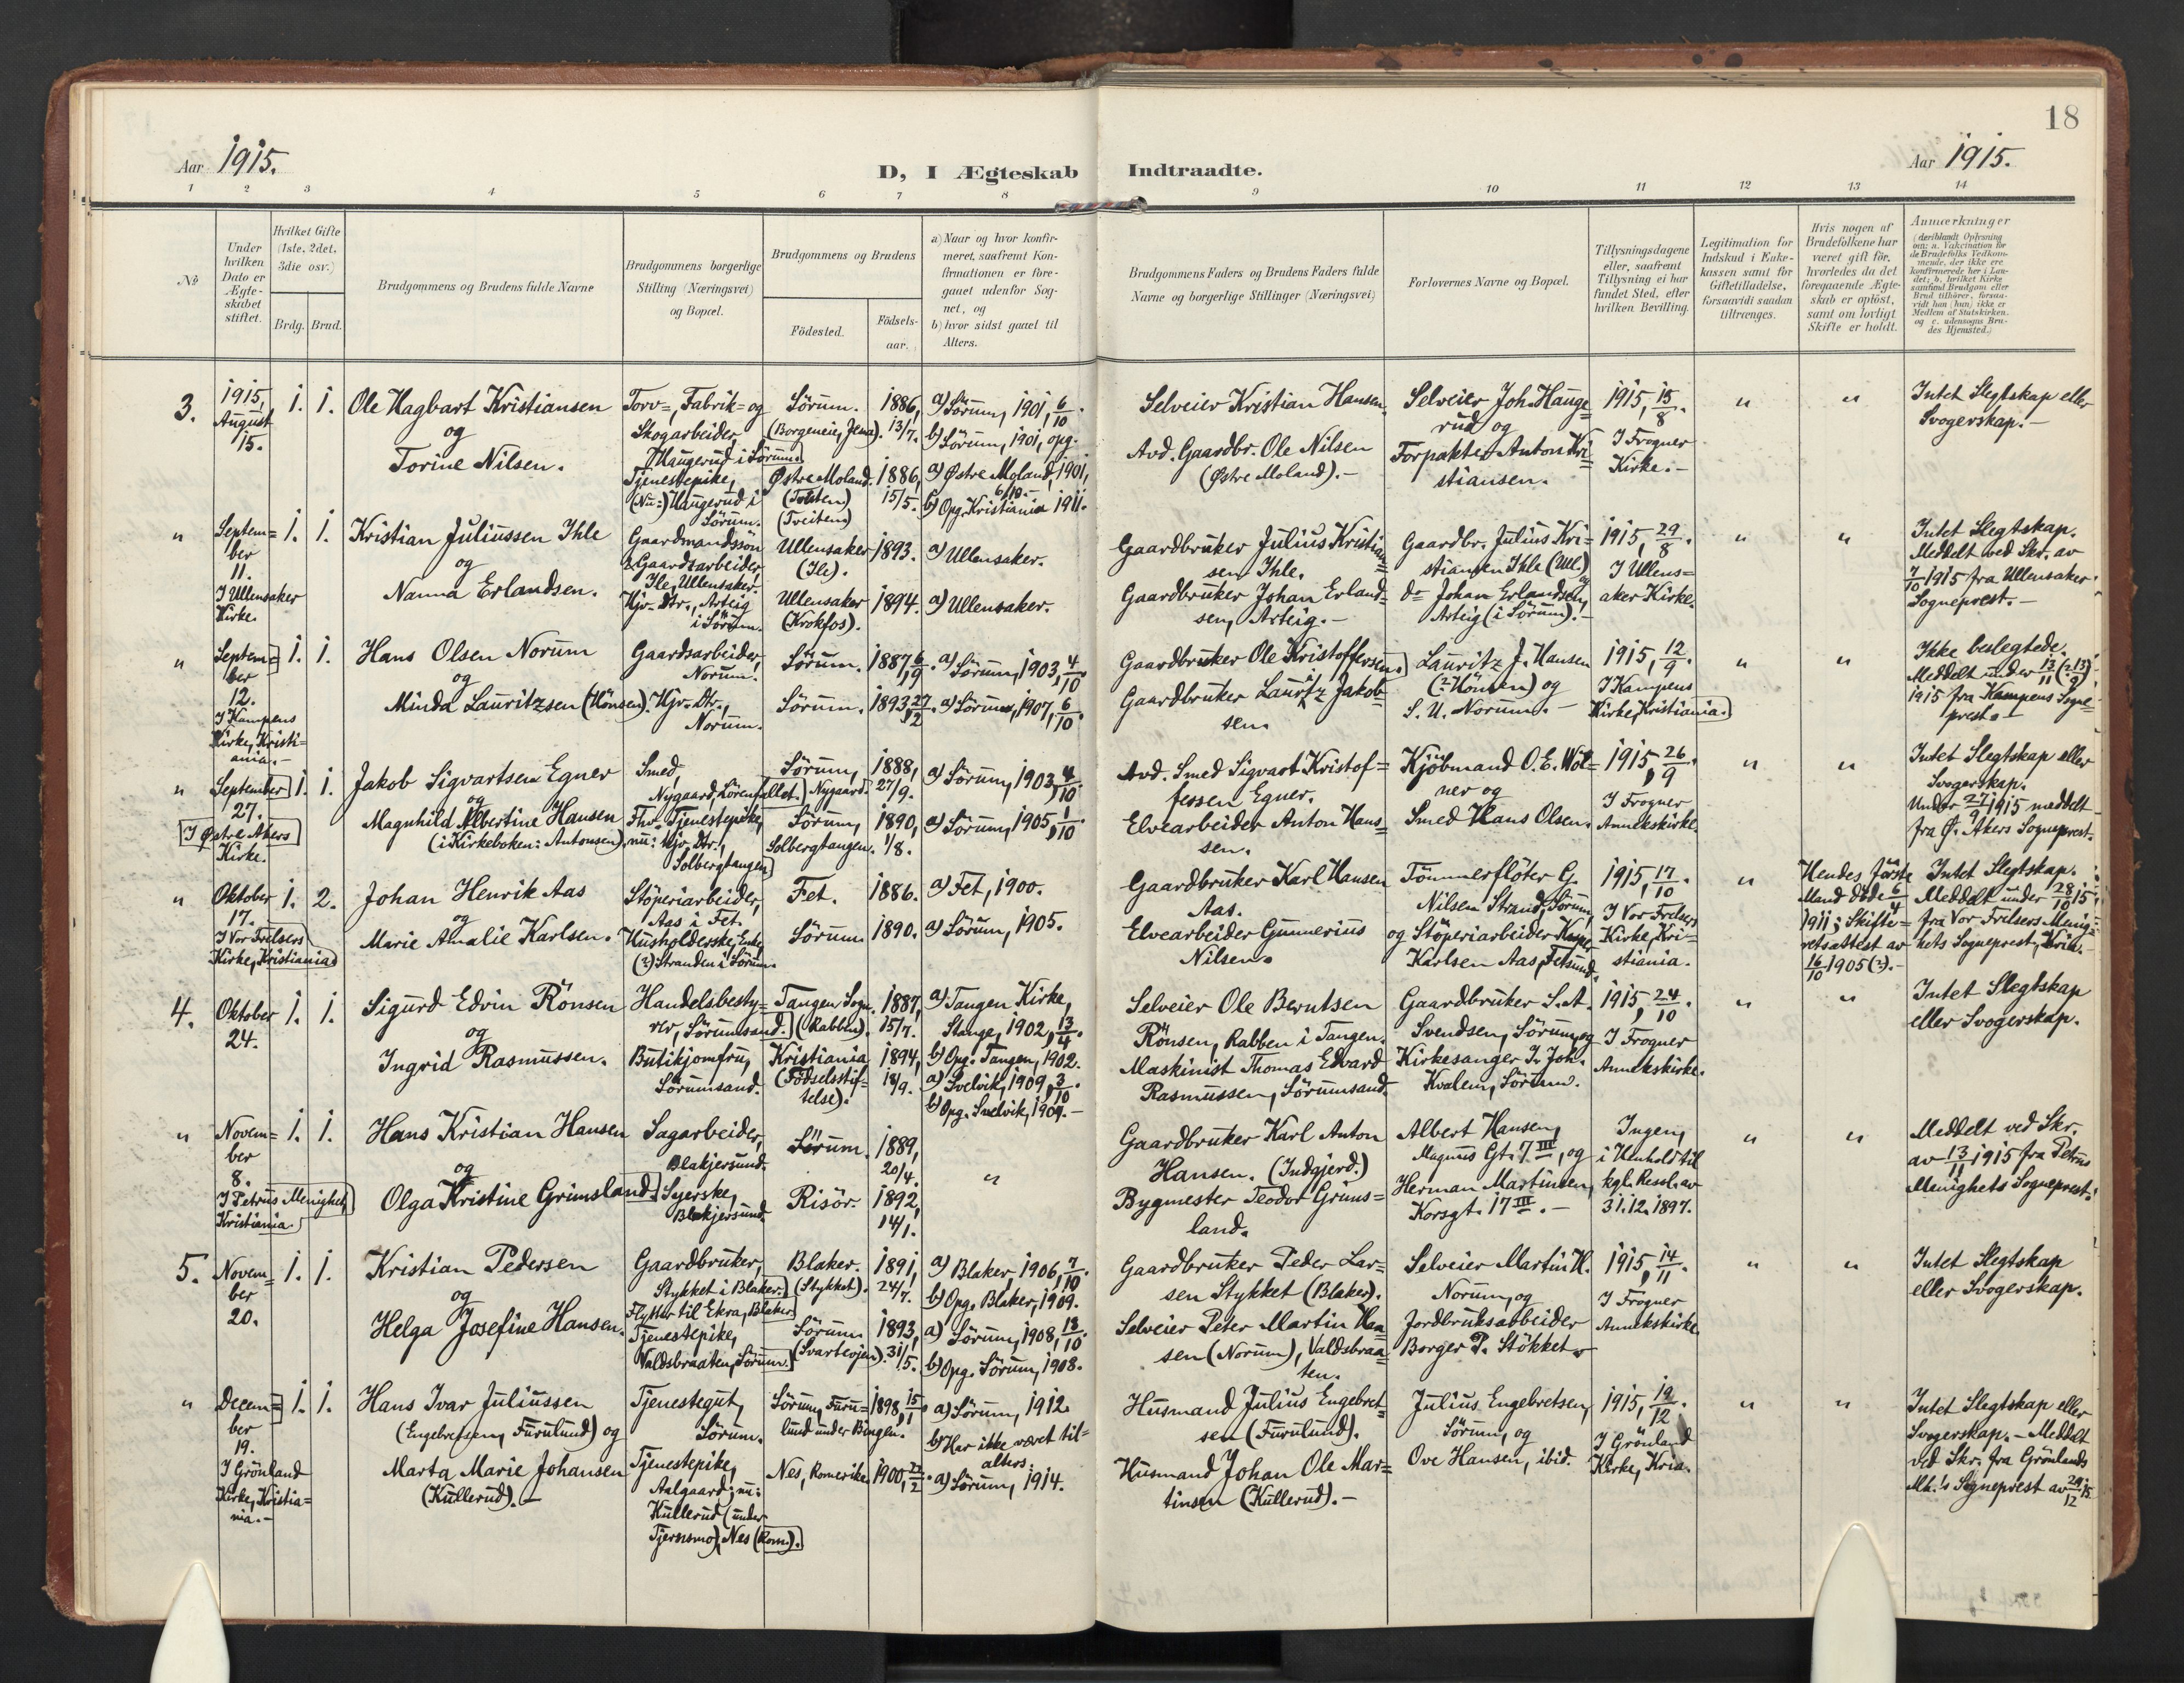 18
Aar 1915.
D, I Ægteskab Indtraadte.
Aar 1915.
1 2 3 4 5 6 7 8 9 10 11 12 13 14
No
Under hvilken Dato er Ægte-
skabet stiftet.
Hvilket Gifte (1ste, 2det, 3die osv.)
Brdg. Brud.
Brudgommens og Brudens fulde Navne
Brudgommens borgerlige
Stilling (Næringsvei)
og Bopæl.
Brudgommens og Brudens
Födested.
Födsels-
aar.
a) Naar og hvor konfir-
meret, saafremt Kon-
firmationen er fore-
gaaet udenfor Sog-
net, og
b) hvor sidst gaaet til
Alters.
Brudgommens Faders og Brudens Faders fulde
Navne og borgerlige Stillinger (Næringsvei)
Forlovernes Navne og Bopæl.
Tillysningsdagene
eller, saafremt
Tillysning ei har
fundet Sted, efter
hvilken Bevilling.
Legitimation for
Indskud i Enke-
kassen samt for
Giftetilladelse,
forsaavidt saadan
tiltrænges.
Hvis nogen af
Brudefolkene har
været gift för,
hvorledes da det
foregaaende Ægte-
skab er oplöst,
samt om lovligt
Skifte er holdt.
Anmærkninger
(deriblandt Oplysning
om: a. Vakcination for
de Brudefolks Vedkom-
mende, der ikke ere
konfirmerede her i Lan-
det; b. hvilket Kirke-
samfund Brudgom eller
Brud tilhörer, forsaa-
vidt han (hun) ikke er
Medlem af Statskirken.
og c. udensogns Bru-
des Hjemsted.)
3.
1915,
August
15.
1. 1.
Ole Hagbart Kristiansen
og
Torine Nilsen.
Torv-, Fabrik- og
Skogarbeider,
Haugerud i Sörum.
Tjenestepike,
(Nu:) Haugerud i
Sörum.
Sörum.
(Borgeneie, Jena).
Östre Moland.
(Treiten)
1886,
13/7.
1886,
15/5.
a) Sörum, 1901, 6/10.
b) Sörum, 1901, opg.
a) Østre Moland, 1901,
6/10.-
b) Opg. Kristiania 1911.
Selveier Kristian Hansen.
Avd. Gaardbr. Ole Nilsen
(Østre Moland).-
Selveier Joh. Hauge-
rud og
Forpakter Anton Kri-
stiansen.
1915, 15/8.
I Frogner
Kirke.-
" "
Intet Slegtskap eller
Svogerskap.-
"
Septem-
ber
11.
I Ullensaker
Kirke.
1. 1.
Kristian Juliussen Ihle
og
Nanna Erlandsen.
Gaardmandssön
& Gaardsarbeider,
Ile, Ullensaker.
Hjv. Dtr., Arteig
i Sörum.
Ullensaker
(Ile).
Ullensaker
(Krokfos).
1893.
1894.
a) Ullensaker.
a) Ullensaker.
Gaardbruker Julius Kristian-
sen Ihle.
Gaardbruker Johan Erland-
sen, Arteig.-
Gaardbr. Julius Kri-
stiansen Ihle (Ull.) og
do Johan Erlandsen,
Arteig (i Sörum).-
1915, 29/8.
I Ullens-
aker Kirke.
" "
Intet Slegtskap.
Meddelt ved Skr. av
7/10 1915 fra Ullensaker
Sogneprest.-
"
Septem-
ber
12.
I Kampens
Kirke, Kristi-
ania.-
1. 1.
Hans Olsen Norum
og
Minda Lauritzsen (Hönsen).
Gaardsarbeider,
Norum.
Hjv. Dtr.,
Norum.
Sörum.
Sörum.
1887, 6/9.
1893, 27/12.
a) Sörum, 1903, 4/10
a) Sörum, 1907, 6/10.
Gaardbruker Ole Kristoffersen.
Gaardbruker Lauritz Jakob-
sen.
Lauritz J. Hansen
(?: Hönsen) og
S. U. Norum.-
1915, 12/9.
I Kampens
Kirke, Kristiania.
" "
Ikke beslegtede.
Meddelt under 13/11 (?: 13/9)
1915 fra Kampens Sogne-
prest.-
"
September
27.
I Østre Akers
Kirke.
1. 1.
Jakob Sigvartsen Egner
og
Magnhild Albertine Hansen
(i Kirkeboken: Antonsen).
Smed,
Nygaard, Lörenfallet.
Fhv. Tjenestepike,
nu: Hjv. Dtr.,
Solbergtangen
Sörum,
Nygaard.
Sörum,
Solbergtangen.
1888,
27/9.
1890,
1/8.
a) Sörum, 1903, 4/10.
a) Sörum, 1905, 1/10.
Avd. Smed Sigvart Kristof-
fersen Egner.
Elvearbeider Anton Hans-
sen.
Kjöbmand O. E. Wol-
ner og
Smed Hans Olsen.
1915, 26/9.
I Frogner
Annekskirke.
" "
Intet Slegtskap eller
Svogerskap.
Under 27/9 1915 meddelt
fra Ø. Akers Sogneprest.
"
Oktober
17.
I Vor Frelsers
Kirke, Kristiania
1. 2.
Johan Henrik Aas
og
Marie Amalie Karlsen.
Stöperiarbeider,
Aas i Fet.
Husholderske, Enke
(?) Stranden i Sörum.
Fet.
Sörum
1886.
1890.
a) Fet, 1900.
a) Sörum, 1905.
Gaardbruker Karl Hansen
Aas.
Elvearbeider Gunnerius
Nilsen.
Tömmerflöter G.
Nilsen Strand, Sörum,
og Stöperiarbeider
Karlsen Aas, Fetsund.
1915, 17/10.
I Vor Frelsers
Kirke, Kri-
stiania.
"
Hendes förste
Mand döde 6/4
1911; Skifte-
retsattest av
16/10 1905 (?).-
Intet Slegtskap.
Meddelt under 28/10 15
fra Vor Frelsers Menig-
hets Sogneprest, Kria.-
4.
Oktober
24.
1. 1.
Sigurd Edvin Rönsen
og
Ingrid Rasmussen.
Handelsbesty-
rer, Sörumsand.
Butikjomfru,
Sörumsand.
Tangen Sogn.
(Rabben).
Kristiania
(Födselsstif-
telse).
1887,
15/7.
1894,
18/9.
a) Tangen Kirke,
Stange, 1902, 13/4.
b) Opg. Tangen, 1902.
a) Svelvik, 1909, 3/10.
b) Opg. Svelvik, 1909.-
Selveier Ole Berntsen
Rönsen, Rabben i Tangen.
Maskinist Thomas Edvard
Rasmussen, Sörumsand.
Gaardbruker S. A.
Svendsen, Sörum, og
Kirkesanger I. Joh.
Kvalem, Sörum.
1915, 24/10.
I Frogner
Annekskirke.
" "
Intet Slegtskap
eller Svogerskap.
"
Novem-
ber
8.
I Petrus Menighet,
Kristiania.
1. 1.
Hans Kristian Hansen
og
Olga Kristine Grimsland.
Sagarbeider,
Blakjersund.
Syerske,
Blakjersund.
Sörum.
Risör.
1889,
20/4.
1892,
14/1.
"
Gaardbruker Karl Anton
Hansen. (Indgjerd.)
Bygmester Teodor Grims-
land.
Albert Hansen,
Magnus Gt. 7 III, og
Herman Martinsen,
Korsgt. 17 III.-
Ingen,
i Henhold til
kgl. Resol. av
31.12.1897.
" "
Meddelt ved Skr.
av 13/11 1915 fra Petrus
Menighets Sogneprest.
5.
Novem-
ber
20.
1. 1.
Kristian Pedersen
og
Helga Josefine Hansen.
Gaardbruker,
Stykket i Blaker.
Flytter til Ekra, Blaker
Tjenestepike,
Valdsbraaten, Sörum.
Blaker.
(Stykket).
Sörum
(Svartevjen).
1891,
24/7.
1893,
31/5.
a) Blaker, 1906, 7/10.
b) Opg. Blaker, 1909.
a) Sörum, 1908, 18/10.
b) Opg. Sörum, 1908.
Gaardbruker Peder Lar-
sen Stykket (Blaker).
Selveier Peter Martin Han-
sen (Norum), Valdsbraa-
ten.
Selveier Martin H.
Norum, og
Jordbruksarbeider
Borger P. Stökket.
1915, 14/11.
I Frogner
Annekskirke.
" "
Intet Slegtskap
eller Svogerskap.
"
Decem-
ber
19.
I Grönland
Kirke, Kristia-
nia.-
1. 1.
Hans Ivar Juliussen
(Engebretsen, Furulund) og
Marta Marie Johansen
(Kullerud).-
Tjenestegut,
Sörum.
Tjenestepike,
Aalgaard; nu:
Kullerud (under
Tjernsmo), Nes (Rom.).
Sörum, Furu-
lund under Bingen.
Nes, Romerike
1898, 15/1
1900, 22/2.
a) Sörum, 1912
b) Har ikke været til-
alters.
a) Sörum, 1914.
Husmand Julius Engebret-
sen (Furulund).
Husmand Johan Ole Mar-
tinsen (Kullerud).-
Julius Engebretsen,
Sörum, og
Ove Hansen, ibid.
1915, 19/12.
I Grönland
Kirke, Kria.
" "
Intet Slegtskap eller
Svogerskap.- Meddelt
ved Skr. fra Grönlands
Mh.'s Sogneprest av 20/12 15